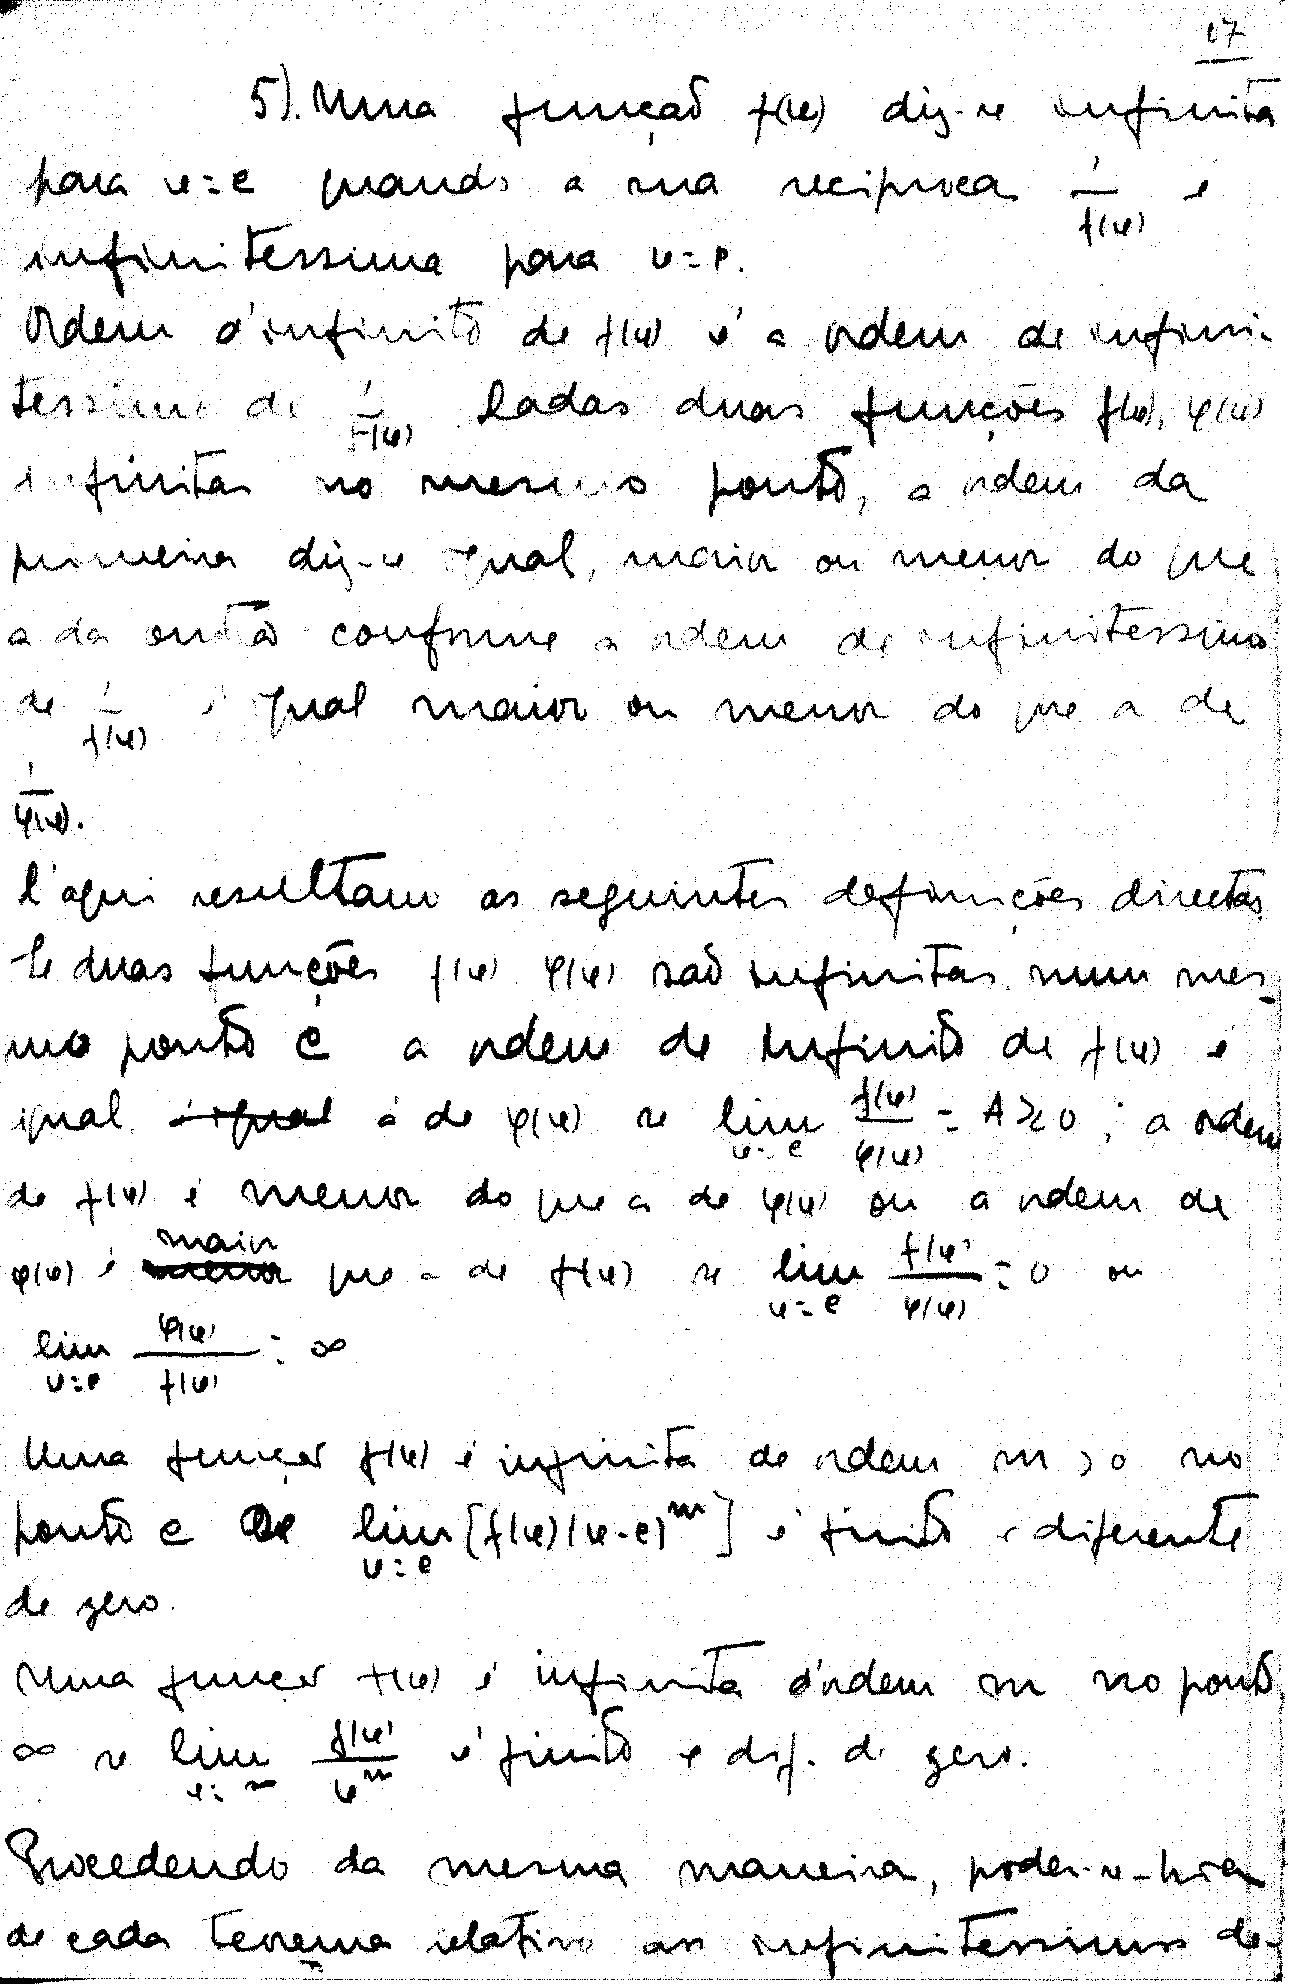 17
5). Uma função f(x) diz-se infinita
para x=c quando a sua reciproca 1/f(x) é
infinitessima para x=c.
Ordem d'infinito de f(x) é a ordem de infini-
tessimo de 1/f(x). Dadas duas funções f(x), φ(x)
infinitas no mesmo ponto, a ordem da
primeira diz-se igual, maior ou menor do que
a da outra conforme a ordem de infinitessimo
de 1/f(x) é igual maior ou menor do que a de
1/φ(x).
D'aqui resultam as seguintes definições directas
Se duas funções f(x) φ(x) são infinitas num mes-
mo ponto c a ordem de infinito de f(x) é
igual é igual á de φ(x) se lim x=c f(x)/φ(x) = A≷0; a ordem
de f(x) é menor do que a de φ(x) ou a ordem de
φ(x) é maior que a de f(x) se lim x=c f(x)/φ(x) = 0 ou
lim x=c φ(x)/f(x) = ∞
Uma funcção f(x) é infinita de ordem m>0 no
ponto c se lim x=c [f(x)(x-c)^m] é finito e diferente
de zero.
Uma funcção f(x) é infinita d'ordem m no ponto
∞ se lim x=∞ f(x)/x^m é finito e dif. de zero.
Procedendo da mesma maneira, poder-se-hia
de cada teorema relativo aos infinitessimos de-